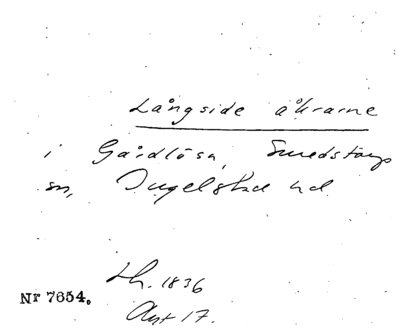 Långside åkrarne
i Gårdlösa, Smedstorps
sn, Ingelstad hd
Lh. 1836
Nr 7654.
Akt 17.